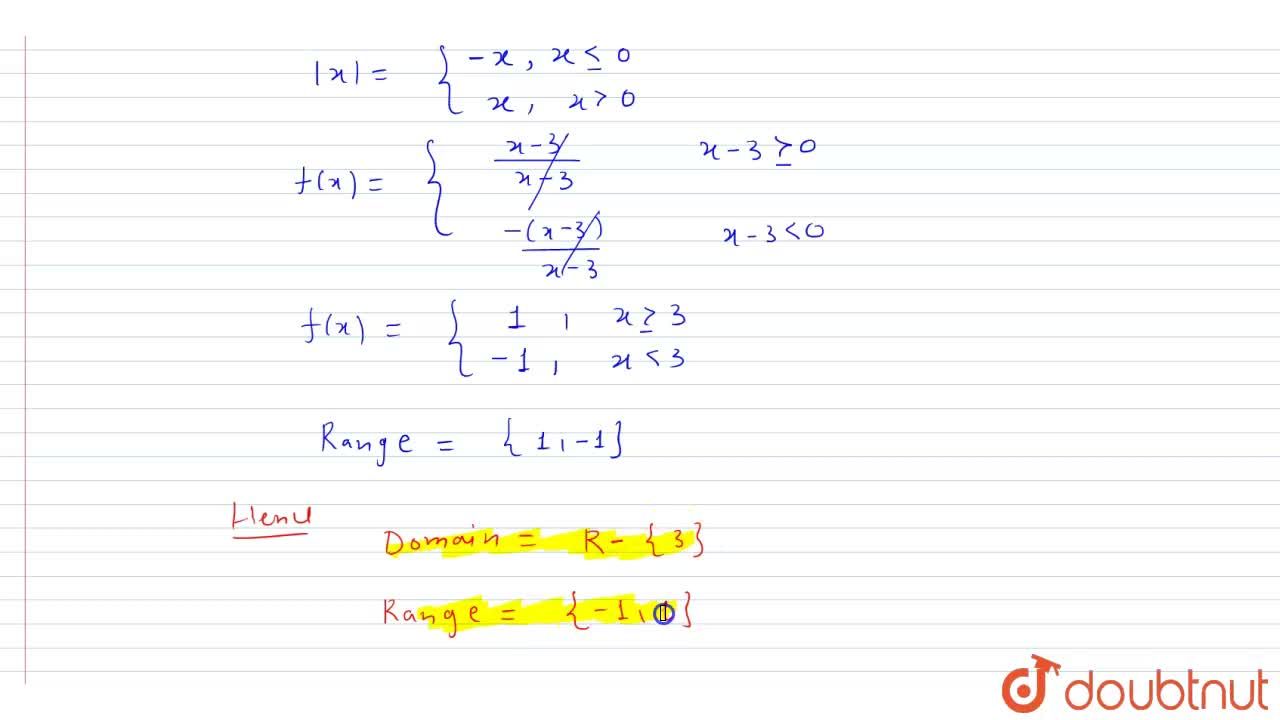 |x| = { -x, x ≤ 0
x, x > 0
f(x) = { x-3 / x-3 x-3 ≥ 0
-(x-3) / x-3 x-3 < 0
f(x) = { 1, x ≥ 3
-1, x < 3
Range = {1, -1}
Hence
Domain = R - {3}
Range = {-1, 1}
doubtnut